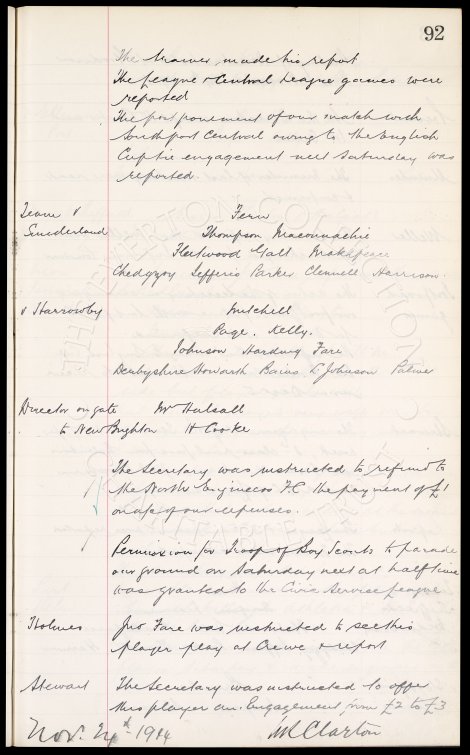 92
The trainer made his report
The League & Central League games were
reported
The postponement of our match with
Southport Central owing to the English
Cuptie engagement next Saturday was
reported.
Team v Fern
Sunderland Thompson Maconnachie
Fleetwood Galt Makepeace
Chedgzoy Jefferis Parker Clennell Harrison.
v Harrowby Mitchell
Page. Kelly.
Johnson Harding Fare
Derbyshire Howarth Bains Johnson Palmer
Director on gate Mr Halsall
to New Brighton H Cooke
The Secretary was instructed to refund to
the North Engineers F.C. the payment of £1
on a/c of our expenses.
Permission for Troop of Boy Scouts to parade
our ground on Saturday next at half time
was granted to the Civic Service League
Holmes Jno Fare was instructed to see this
player play at Crewe & report
Stewart The Secretary was instructed to offer
this player an Engagement, from £2 to £3
Nov. 24th 1914 Clarton